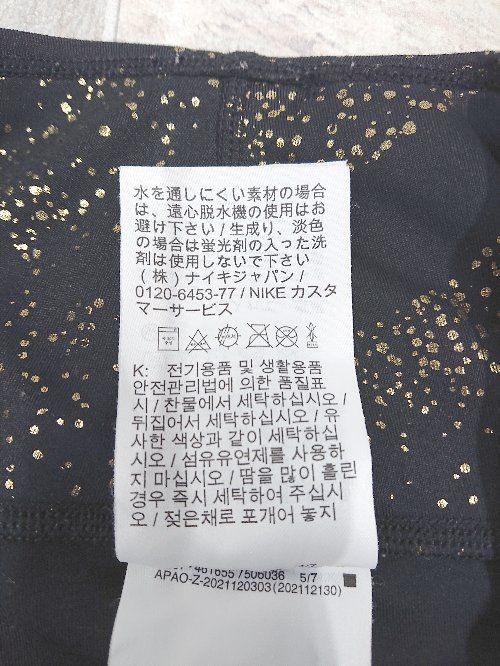 水を通しにくい素材の場合
は、遠心脱水機の使用はお
避け下さい / 生成り、淡色
の場合は蛍光剤の入った洗
剤は使用しないで下さい
(株)ナイキジャパン /
0120-6453-77 / NIKE カスタ
マーサービス
K: 전기용품 및 생활용품
안전관리법에 의한 품질표
시 / 찬물에서 세탁하십시오 /
뒤집어서 세탁하십시오 / 유
사한 색상과 같이 세탁하십
시오 / 섬유유연제를 사용하
지 마십시오 / 땀을 많이 흘린
경우 즉시 세탁하여 주십시
오 / 젖은채로 포개어 놓지
461655 / 506036 5/7
APAO-Z-2021120303 (202112130)